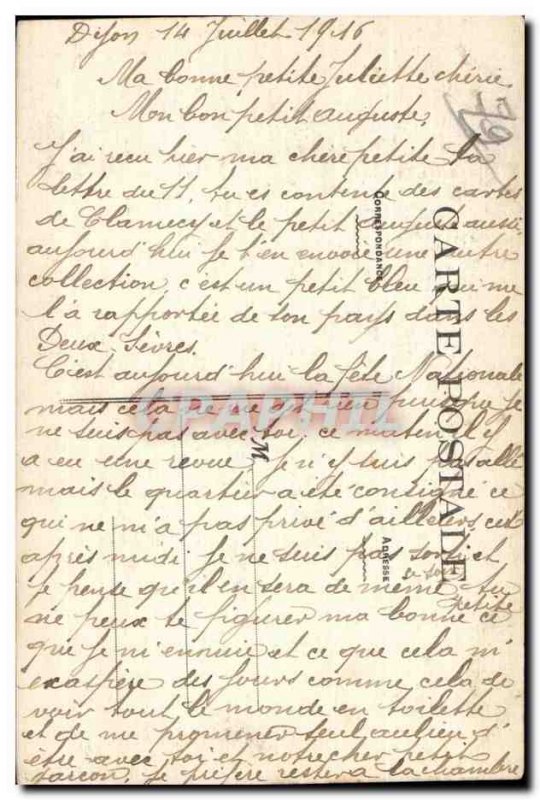 Dijon 14 Juillet 1916
Ma bonne petite Juliette chérie
Mon bon petit auguste,
79
J'ai reçu hier ma chère petite ta
lettre du 11, tu es contente des cartes
de Clamecy et le petit auguste aussi
aujourd'hui je t'en envoie une autre
collection, c'est un petit bleu qui me
l'a rapportée de ton pays dans les
Deux Sèvres.
C'est aujourd'hui la fête Nationale
mais cela ne me dit rien puisque je
ne suis pas avec toi. ce matin il y
a eu une revue. Je n'y suis pas allé
mais le quartier a été consigné ce
qui ne m'a pas privé d'ailleurs cet
après midi je ne suis pas sorti et
je pense qu'il en sera de même ce soir tu
ne peux te figurer ma bonne petite ce
que je m'ennuie et ce que cela m'
exaspère des jours comme cela de
voir tout le monde en toilette
et de me promener seul, au lieu d'
être avec toi et notre cher petit
garçon, je préfère rester à la chambre
CARTE POSTALE
CORRESPONDANCE
ADRESSE
M
CPAPHIL